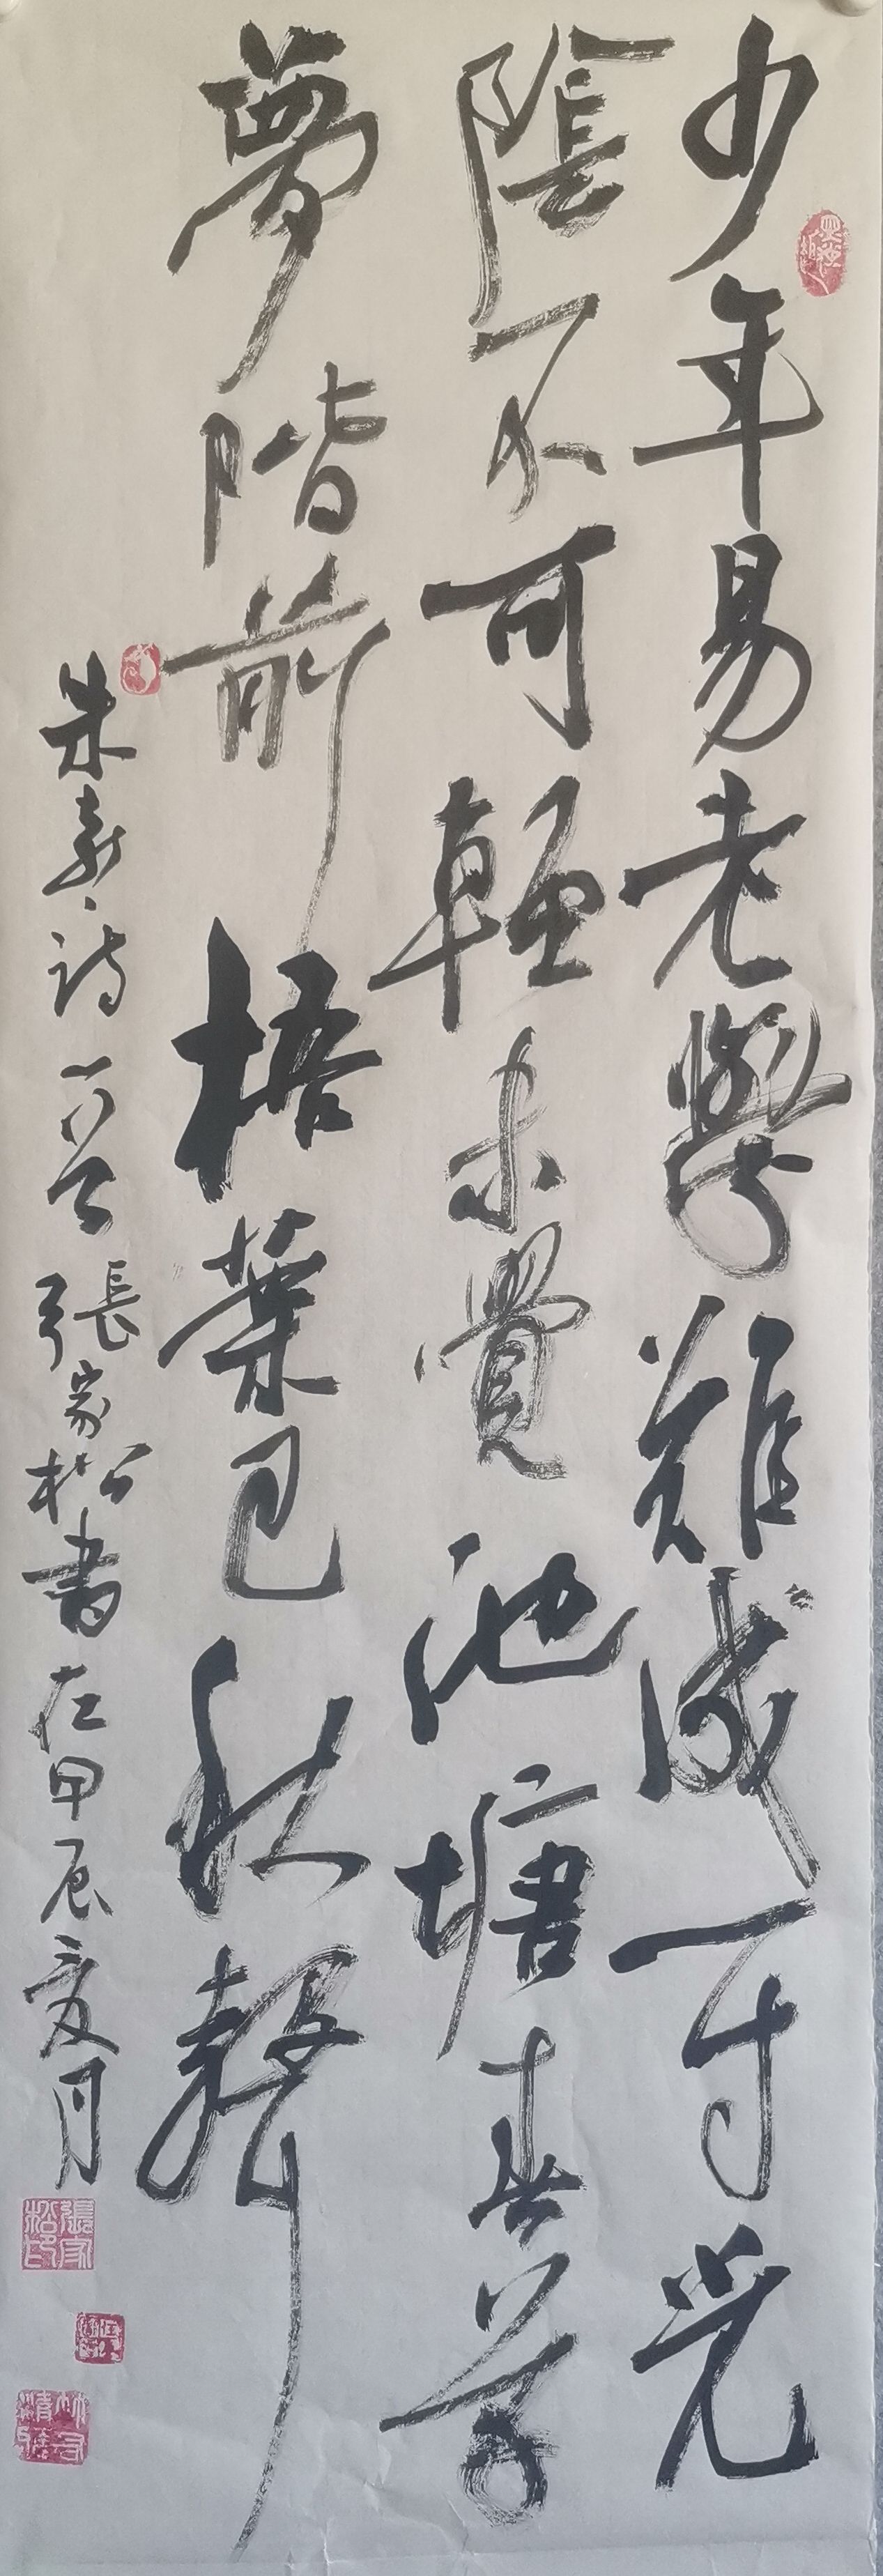 少年易老學難成一寸光
陰不可輕未覺池塘春草
夢階前梧葉已秋聲
朱熹詩一首張家松書在甲辰夏月
張家松印